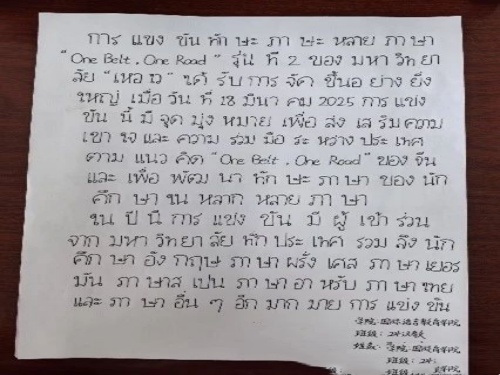 การ แข่ง ขัน ทัก ษะ ภา ษะ หลาย ภา ษา
"One Belt . One Road" รุ่น ที่ 2 ของ มหา วิท ยา
ลัย "เหอ ไว" ได้ รับ การ จัด ขึ้นอ ย่าง ยิ่ง
ใหญ่ เมื่อ วัน ที่ 18 มีนา คม 2025 การ แข่ง
ขัน นี้ มี จุด มุ่ง หมาย เพื่อ ส่ง เส ริมความ
เขา ใจ และ ความ ร่วม มือ ระ หว่าง ประ เทศ
ตาม แนว คิด "One Belt . One Road" ของ จีน
และ เพื่อ พัฒ นา ทัก ษะ ภา ษา ของ นัก
ศึก ษา ใน หลาก หลาย ภา ษา
ใน ปี นี้ การ แข่ง ขัน มี ผู้ เข้า ร่วน
จาก มหา วิทยา ลัย ทัก ประ เทศ รวม ถึง นัก
ศึก ษา อัง กฤษ ภา ษา ฝรั่ง เศส ภา ษา เยอร
มัน ภา ษาส เปน ภา ษา อา หรับ ภา ษา ไทย
และ ภา ษา อื่น ๆ อีก มาก มาย การ แข่ง ขัน
学院:国际语言教育学院
班级:
姓名: 学院:国际教育学院
班级: 24